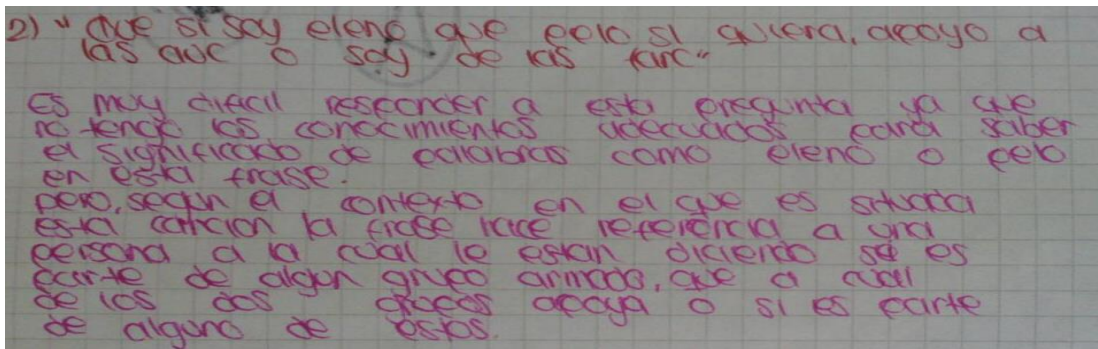 2) " Que si soy eleno que pelo si quiera, apoyo a
las auc o soy de las farc"
Es muy dificil responder a esta pregunta ya que
no tengo los conocimientos adecuados para saber
el significado de palabras como eleno o pelo
en esta frase.
pero, según el contexto en el que es situada
esta cancion la frase hace referencia a una
persona a la cual le estan diciendo se es
parte de algun grupo armado, que a cual
de los dos grupos apoya o si es parte
de alguno de estos.